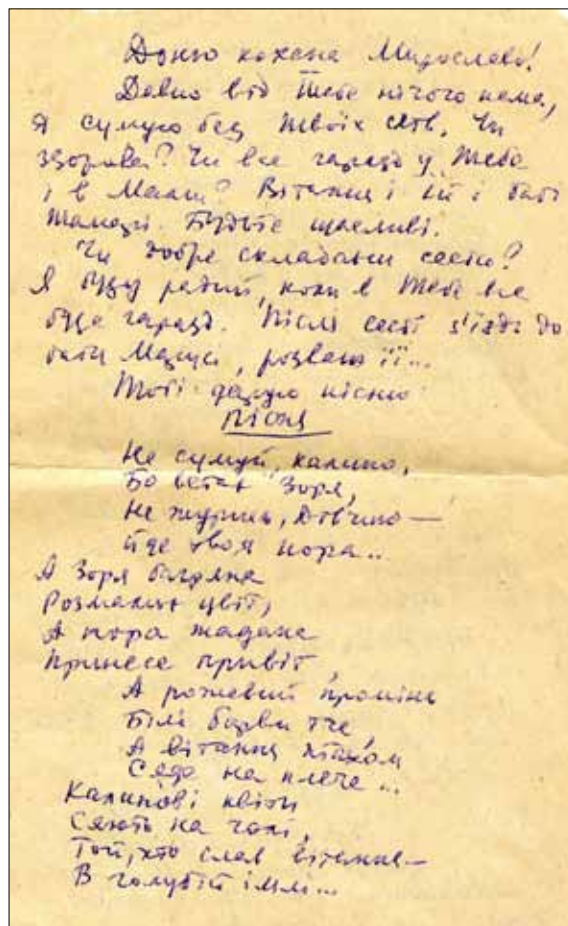 Доню кохана Мирославо!
Давно від Тебе нічого нема,
Я сумую без Твоїх слів. Чи
здорова? Чи все гаразд у Тебе
і в Мами? Вітання і їй і бабі
Мамезі. Будьте щасливі.
Чи добре складаєш сесію?
Я буду радий, коли в Тебе все
буде гаразд. Після сесії з'їздь до
баби, розваж її...
Тобі дарую пісню
Пісня
Не сумуй, калино,
Бо встає Зоря,
Не журись, Дівчино —
йде твоя пора..
А Зоря багряна
Розмалює цвіт,
А пора жадана
Принесе привіт,
А рожевий промінь
Білі барви тче,
А вітання птахом
Сяде на плече...
Калинові квіти
Сяють на чолі,
Той, хто слав вітання —
В голубій імлі...